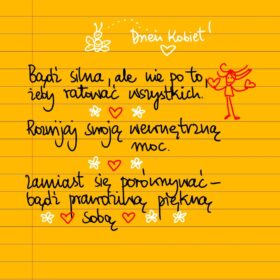 Dzień Kobiet!
Bądź silna, ale nie po to,
żeby ratować wszystkich.
Rozwijaj swoją wewnętrzną
moc.
Zamiast się porównywać –
bądź prawdziwą, piękną
sobą